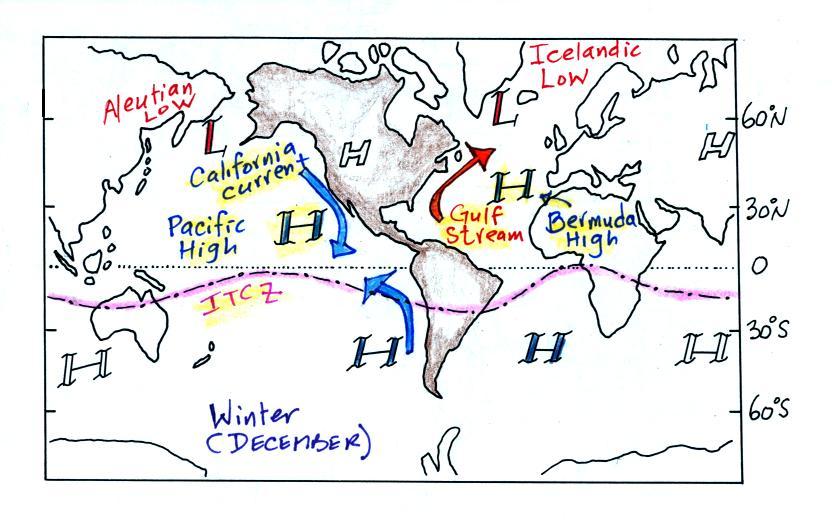 Icelandic
Low
Aleutian
Low
L
L
60°N
H
H
California
current
H
30°N
Pacific
High
H
Gulf
Stream
Bermuda
High
0
ITCZ
30°S
H
H
H
H
60°S
Winter
(DECEMBER)